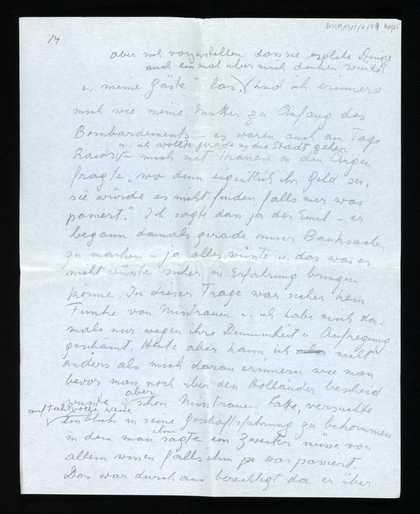 14
aber mit vorzustellen dass sie solche Dinge
auch einmal über mich denken würde
u. "meine Gäste" las. Und ich erinnere
mich wie meine Mutter zu Anfang des
Bombardements — es waren auch am Tage
u. wollte gerade in die Stadt gehen
mich mit Tränen in den Augen
fragte, wo denn eigentlich ihr Geld sei,
sie würde es nicht finden falls mir was
passiert." Ich sagte dann ja der Emil — er
begann damals gerade unsere Banksachen
zu machen — ja alles wüsste u. das was er
nicht wüsste sicher in Erfahrung bringen
könne. In dieser Frage war sicher kein
Funke von Misstrauen u. ich habe mich da-
mals nur wegen ihre Dummheit u. Aufregung
geschämt. Heute aber kann ich nicht
anders als mich daran erinnern wie man
bevor man noch über den Holländer bescheid
wusste aber schon Misstrauen hatte, versuchte
auf taktvolle Weise
Einblick in seine Geschäftsführung zu bekommen
in dem man ihm sagte ein Zweiter müsse von
allem wissen falls ihm je was passiert.
Das war durchaus berechtigt da er über